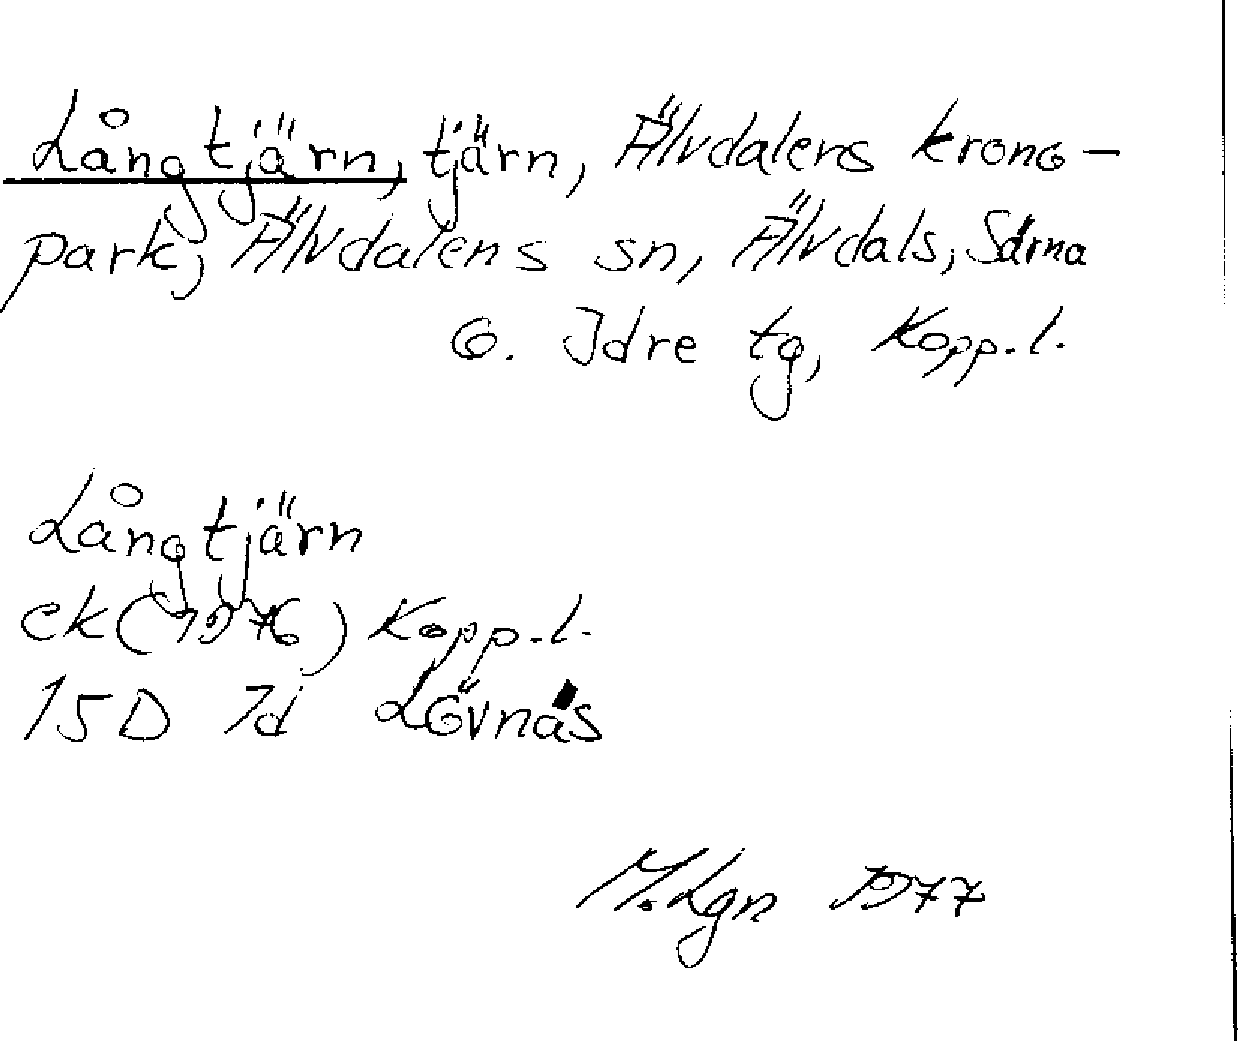 Långtjärn, tjärn, Älvdalens krono-
park, Älvdalens sn, Älvdals, Särna
o. Idre tg, Kopp.l.
Långtjärn
ek(1976) Kopp.l.
15D 7d Lövnäs
M.Lgn 1977